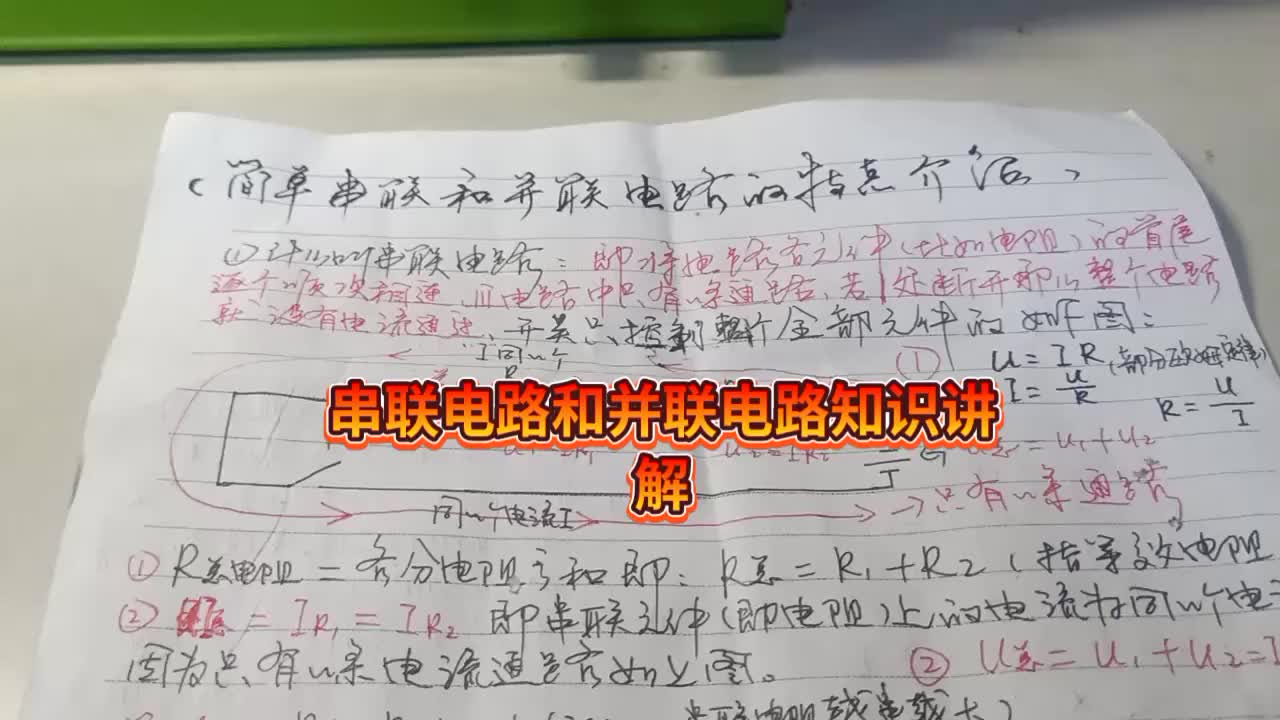 (简单串联和并联电路的特点介绍)
(1)什么叫串联电路:即将电路各元件(比如电阻)的首尾
逐个顺次相连,且电路中只有一条通路,若1处断开那么整个电路
就没有电流通过,开关只控制整个全部元件的如下图:
I同一个
① U=IR(部分欧姆定律)
I=U/R
R=U/I
串联电路和并联电路知识讲
解
=U₁+U₂
同一个电流I
→只有一条通路
①R总电阻=各分电阻之和即:R总=R₁+R₂(指等效电阻
②I总=IR₁=IR₂ 即串联元件(即电阻)上的电流为同一个电
因为只有一条电流通路如上图。
②U总=U₁+U₂=I
串联电阻越串越大)